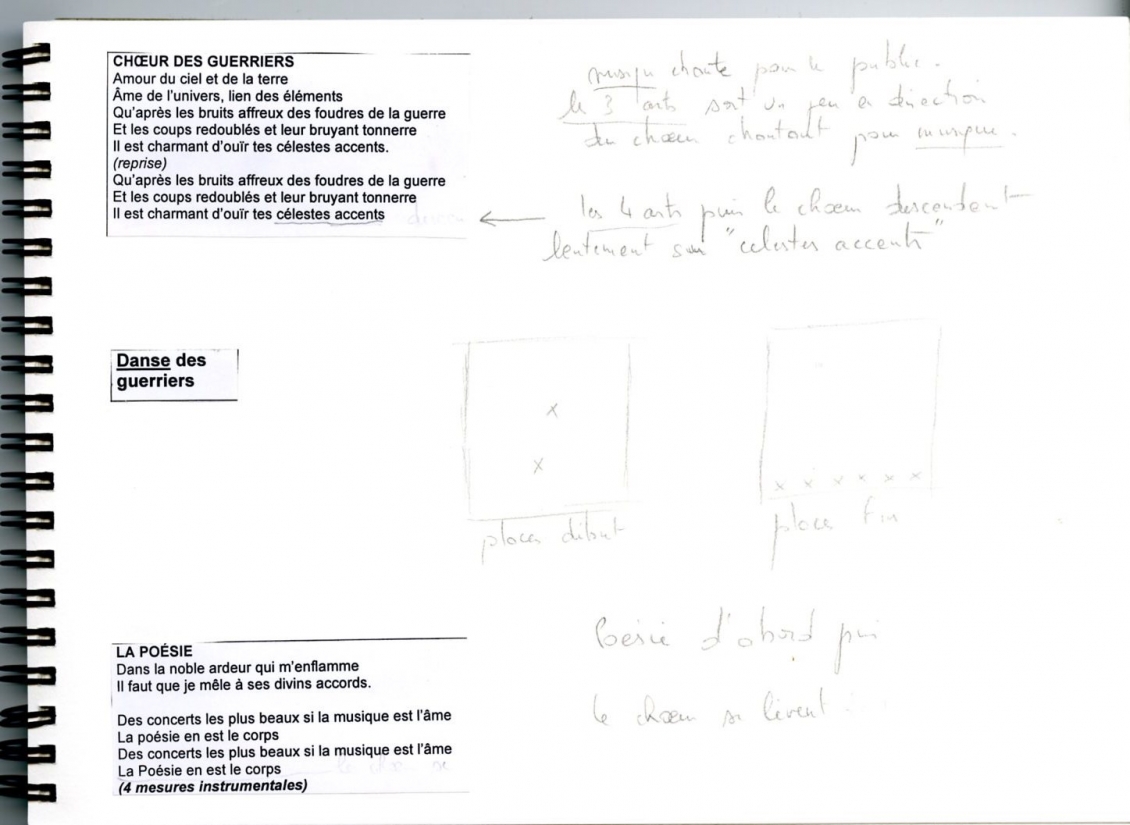 CHŒUR DES GUERRIERS
Amour du ciel et de la terre
Âme de l'univers, lien des éléments
Qu'après les bruits affreux des foudres de la guerre
Et les coups redoublés et leur bruyant tonnerre
Il est charmant d'ouïr tes célestes accents.
(reprise)
Qu'après les bruits affreux des foudres de la guerre
Et les coups redoublés et leur bruyant tonnerre
Il est charmant d'ouïr tes célestes accents
musique chante pour le public.
les 3 arts sont un peu en direction
du chœur chantant pour musique.
les 4 arts puis le chœur descendent
lentement sur "celestes accents"
Danse des
guerriers
x
x
places début
x x x x x x
place fin
LA POÉSIE
Dans la noble ardeur qui m'enflamme
Il faut que je mêle à ses divins accords.
Des concerts les plus beaux si la musique est l'âme
La poésie en est le corps
Des concerts les plus beaux si la musique est l'âme
La Poésie en est le corps
(4 mesures instrumentales)
Poésie d'abord puis
le chœur se lèvent